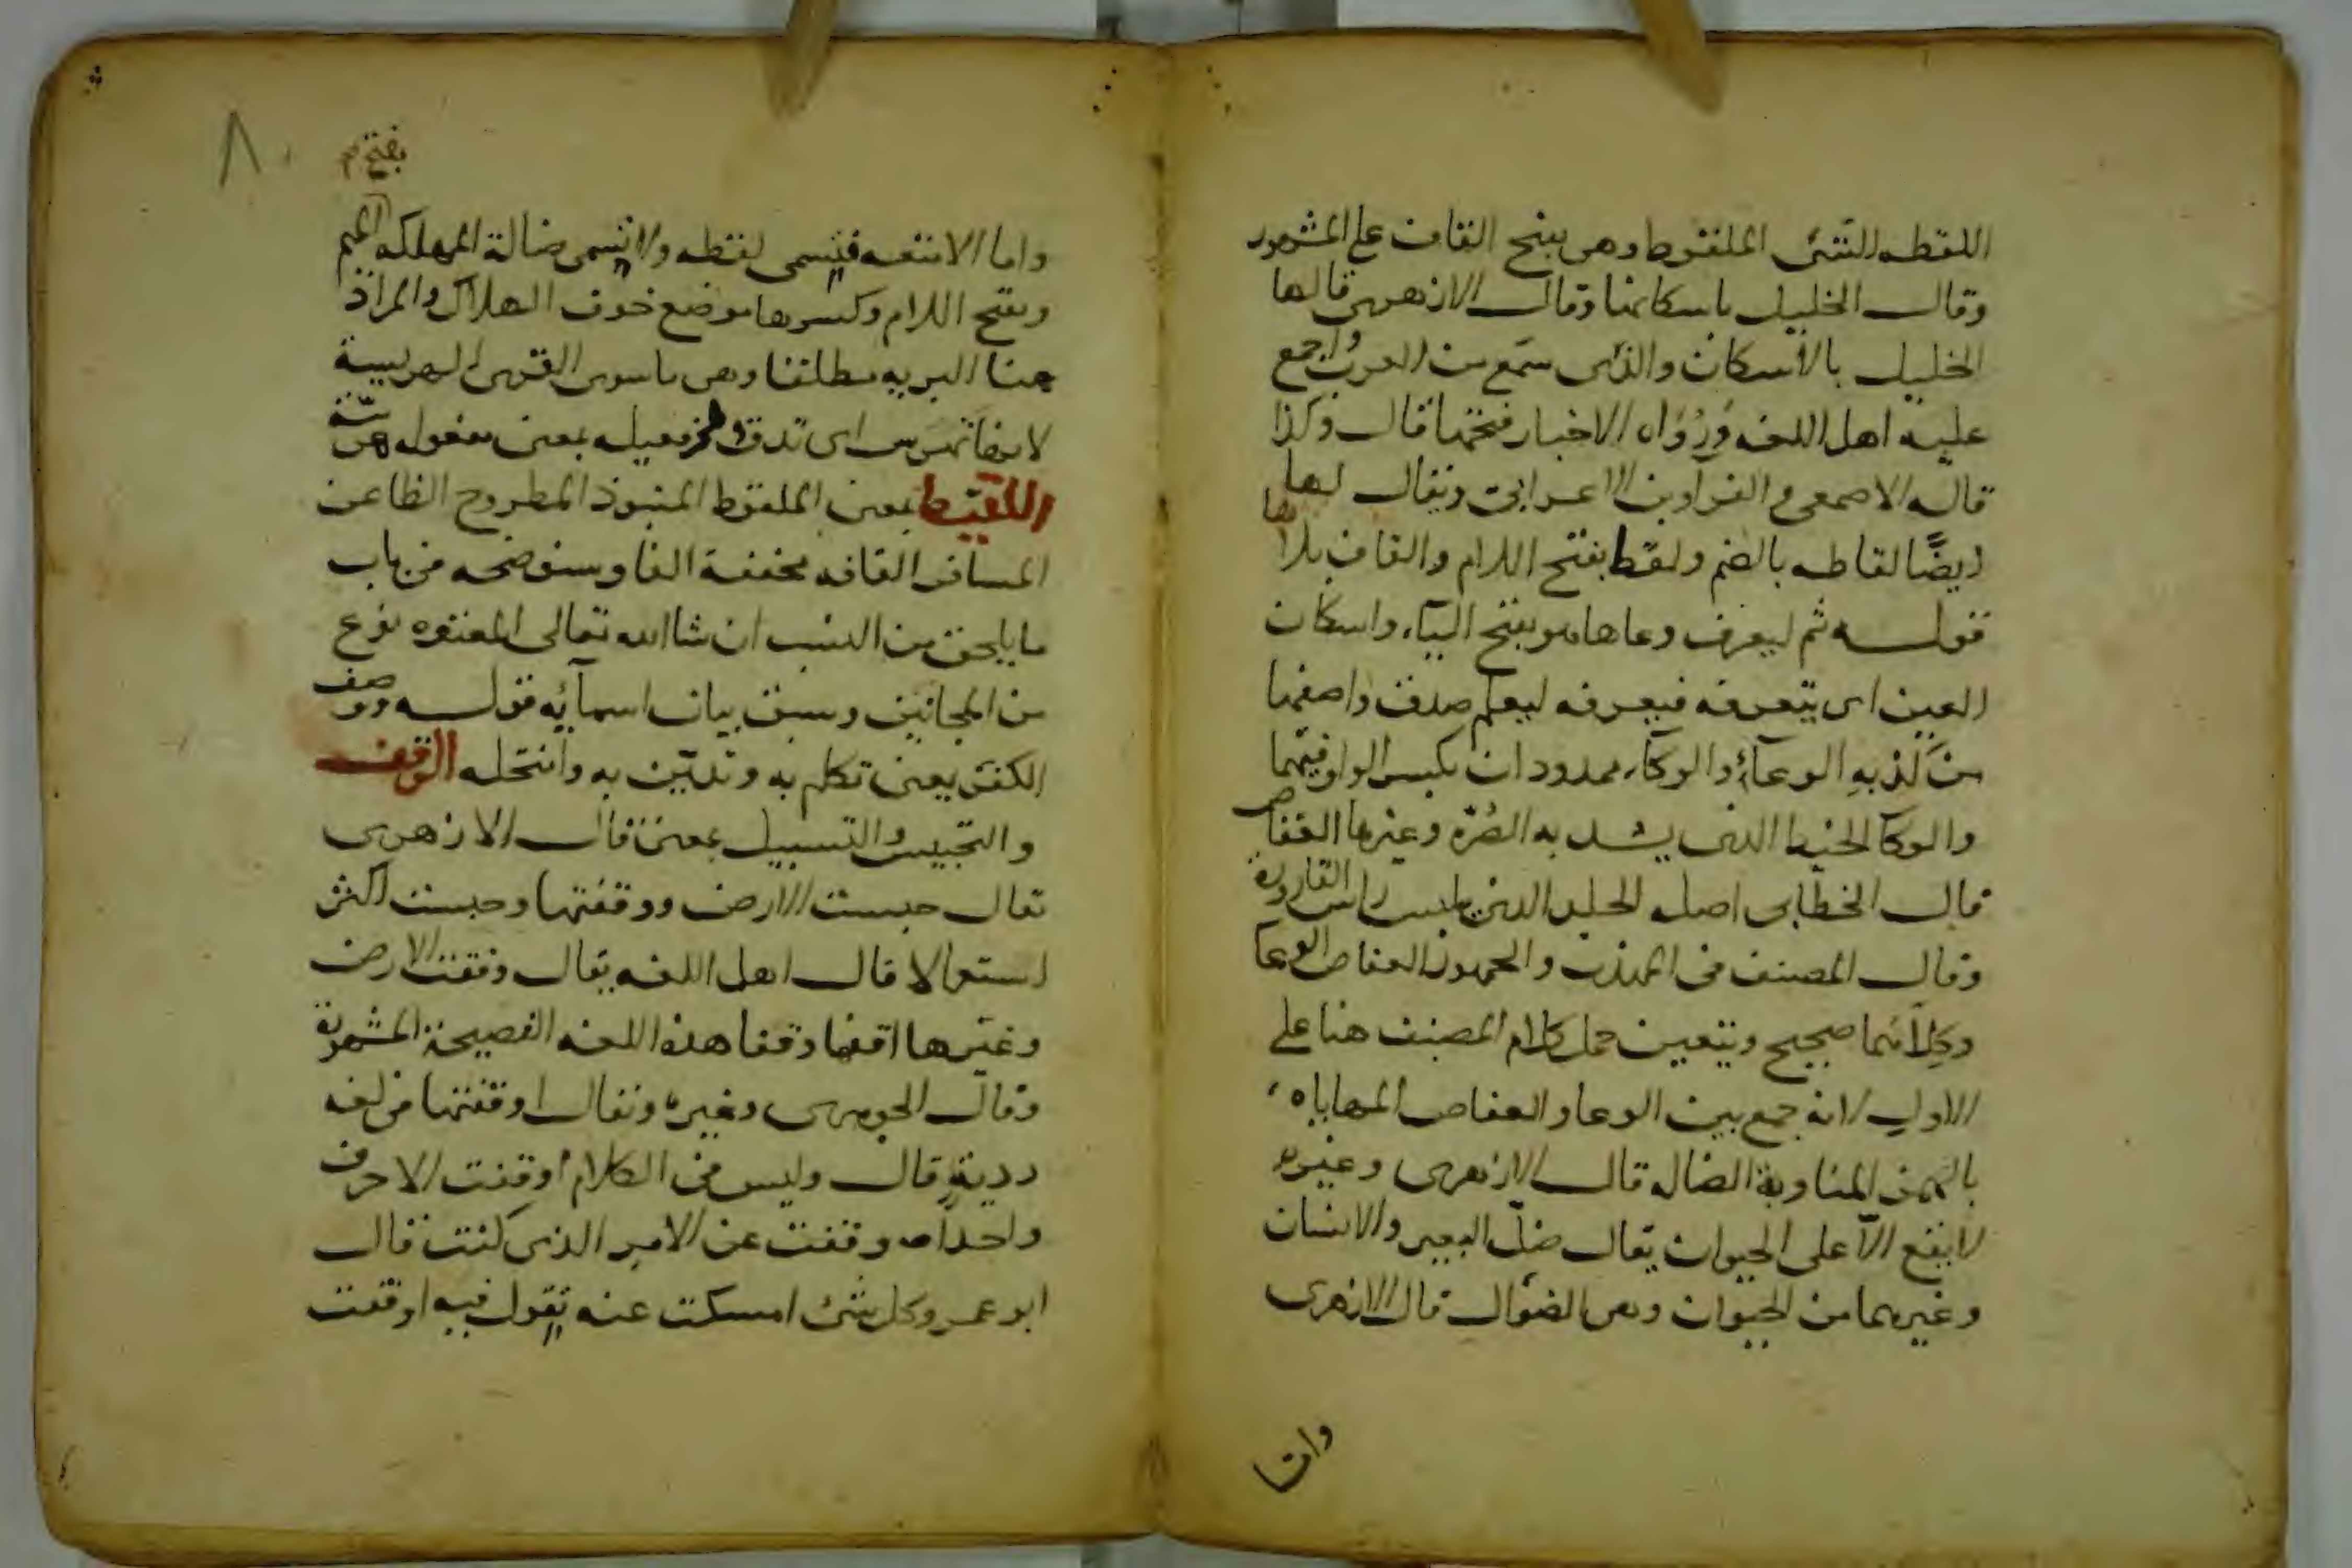 اللقطه الشئ الملقوط وهى بفتح القاف على المشهور
وقال الخليل باسكانها وقال الازهرى قالها
الخليل بالاسكان والذى سمع من العرب واجمع
عليه اهل اللغه ورواه الاخبار فتحها قال وكذا
قاله الاصمعى والفرا وبن الاعرابى ويقال لها
ايضًا لقاطه بالضم ولقط بفتح اللام والقاف بلا ها
قوله ثم ليعرف وعاها هو بفتح الياء واسكان
العين اى يتعرفه فيعرفه ليعلم صدق واصفها
من كذبه الوعاء والوكاء ممدودان بكسر الواو فيهما
والوكا الخيط الذى يشد به الصرّه وغيرها العفاص
قال الخطابى اصله الجلد الذى يلبس راس القاروره
وقال المصنف فى المهذب والجمهور العفاص الوعا
وكلاهما صحيح ويتعين حمل كلام المصنف هنا على
الاول لانه جمع بين الوعا والعفاص المهاياه
بالهمز المناوبة الضاله قال الازهرى وغيره
لا يقع الّا على الحيوان يقال ضلّ البعير والانسان
وغيرهما من الحيوان وهى الضوال قال الازهرى
واما
٨٠
بفتح م
واما الامتعه فتسمى لقطه ولا تسمى ضالة المهلكه الميم
وبفتح اللام وكسرها موضع خوف الهلاك والمراد
هنا البريه مطلقا وهى ما سوى القرى الهريسة
لانها تهرس اى تدق فعيله بمعنى مفعوله
اللقيط بمعنى الملقوط المنبوذ المطروح الظاعن
المسافر القافه مخففة الفا وسنوضحه فى باب
ما يلحق من النسب ان شا الله تعالى المعتوه نوع
من المجانين وسبق بيان اسمآئه قوله ووصف
الكفر يعنى تكلم به وتديّن به وانتحله الوقف
والتحبيس والتسبيل بمعنى قال الازهرى
يقال حبست الارض ووقفتها وحبست اكثر
استعمالا قال اهل اللغه يقال وقفت الارض
وغيرها اقفها وقفا هذه اللغه الفصيحة المشهورة
وقال الجوهرى وغيره ويقال اوقفتها فى لغه
رديةٍ قال وليس فى الكلام اوقفت الا حرف
واحداً وقفت عن الامر الذى كنت قال
ابو عمر وكل شئ امسكت عنه تقول فيه اوقفت